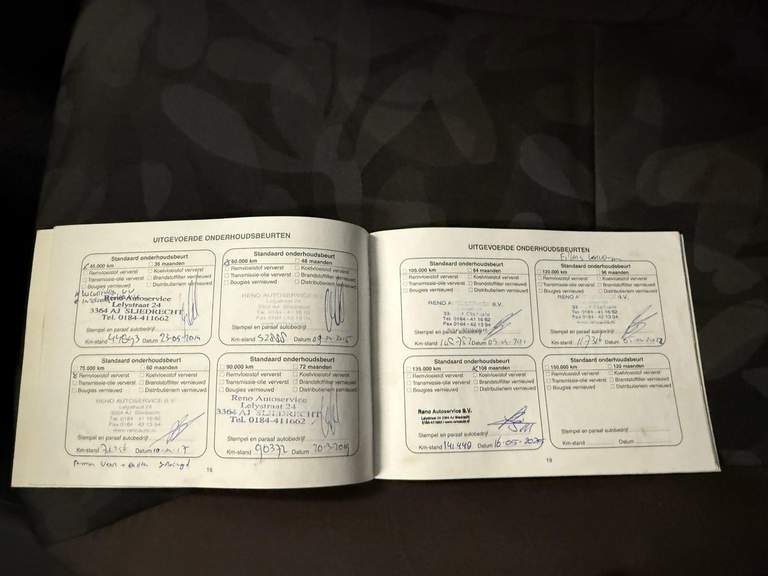 UITGEVOERDE ONDERHOUDSBEURTEN
Standaard onderhoudsbeurt
45.000 km 36 maanden
Remvloeistof ververst Koelvloeistof ververst
Transmissie-olie ververst Brandstoffilter vernieuwd
Bougies vernieuwd Distributieriem vernieuwd
Reno Autoservice
Lelystraat 24
3364 AJ SLIEDRECHT
Tel. 0184-411662
Stempel en paraaf autobedrijf
Km-stand Datum
Standaard onderhoudsbeurt
60.000 km 48 maanden
Remvloeistof ververst Koelvloeistof ververst
Transmissie-olie ververst Brandstoffilter vernieuwd
Bougies vernieuwd Distributieriem vernieuwd
RENO AUTOSERVICE
Stempel en paraaf autobedrijf
Km-stand 52888 Datum
Standaard onderhoudsbeurt
75.000 km 60 maanden
Remvloeistof ververst Koelvloeistof ververst
Transmissie-olie ververst Brandstoffilter vernieuwd
Bougies vernieuwd Distributieriem vernieuwd
RENO AUTOSERVICE B.V.
Lelystraat 24
3364 AJ Sliedrecht
Tel. 0184 - 41 16 62
Fax 0184 - 42 13 54
Stempel en paraaf autobedrijf
Km-stand Datum
Standaard onderhoudsbeurt
90.000 km 72 maanden
Remvloeistof ververst Koelvloeistof ververst
Transmissie-olie ververst Brandstoffilter vernieuwd
Bougies vernieuwd Distributieriem vernieuwd
Reno Autoservice
Lelystraat 24
3364 AJ SLIEDRECHT
Tel. 0184-411662
Stempel en paraaf autobedrijf
Km-stand 90372 Datum 20-3-2019
18
UITGEVOERDE ONDERHOUDSBEURTEN
Standaard onderhoudsbeurt
105.000 km 84 maanden
Remvloeistof ververst Koelvloeistof ververst
Transmissie-olie ververst Brandstoffilter vernieuwd
Bougies vernieuwd Distributieriem vernieuwd
RENO B.V.
Tel. 0184 - 41 16 62
Fax 0184 - 42 13 54
Stempel en paraaf autobedrijf
Km-stand Datum
Standaard onderhoudsbeurt
120.000 km 96 maanden
Remvloeistof ververst Koelvloeistof ververst
Transmissie-olie ververst Brandstoffilter vernieuwd
Bougies vernieuwd Distributieriem vernieuwd
RENO B.V.
Tel. 0184 - 41 16 62
Fax 0184 - 42 13 54
Stempel en paraaf autobedrijf
Km-stand Datum
Standaard onderhoudsbeurt
135.000 km 108 maanden
Remvloeistof ververst Koelvloeistof ververst
Transmissie-olie ververst Brandstoffilter vernieuwd
Bougies vernieuwd Distributieriem vernieuwd
Reno Autoservice B.V.
Stempel en paraaf autobedrijf
Km-stand 141440 Datum 16-05-2025
Standaard onderhoudsbeurt
150.000 km 120 maanden
Remvloeistof ververst Koelvloeistof ververst
Transmissie-olie ververst Brandstoffilter vernieuwd
Bougies vernieuwd Distributieriem vernieuwd
Stempel en paraaf autobedrijf
Km-stand Datum
19